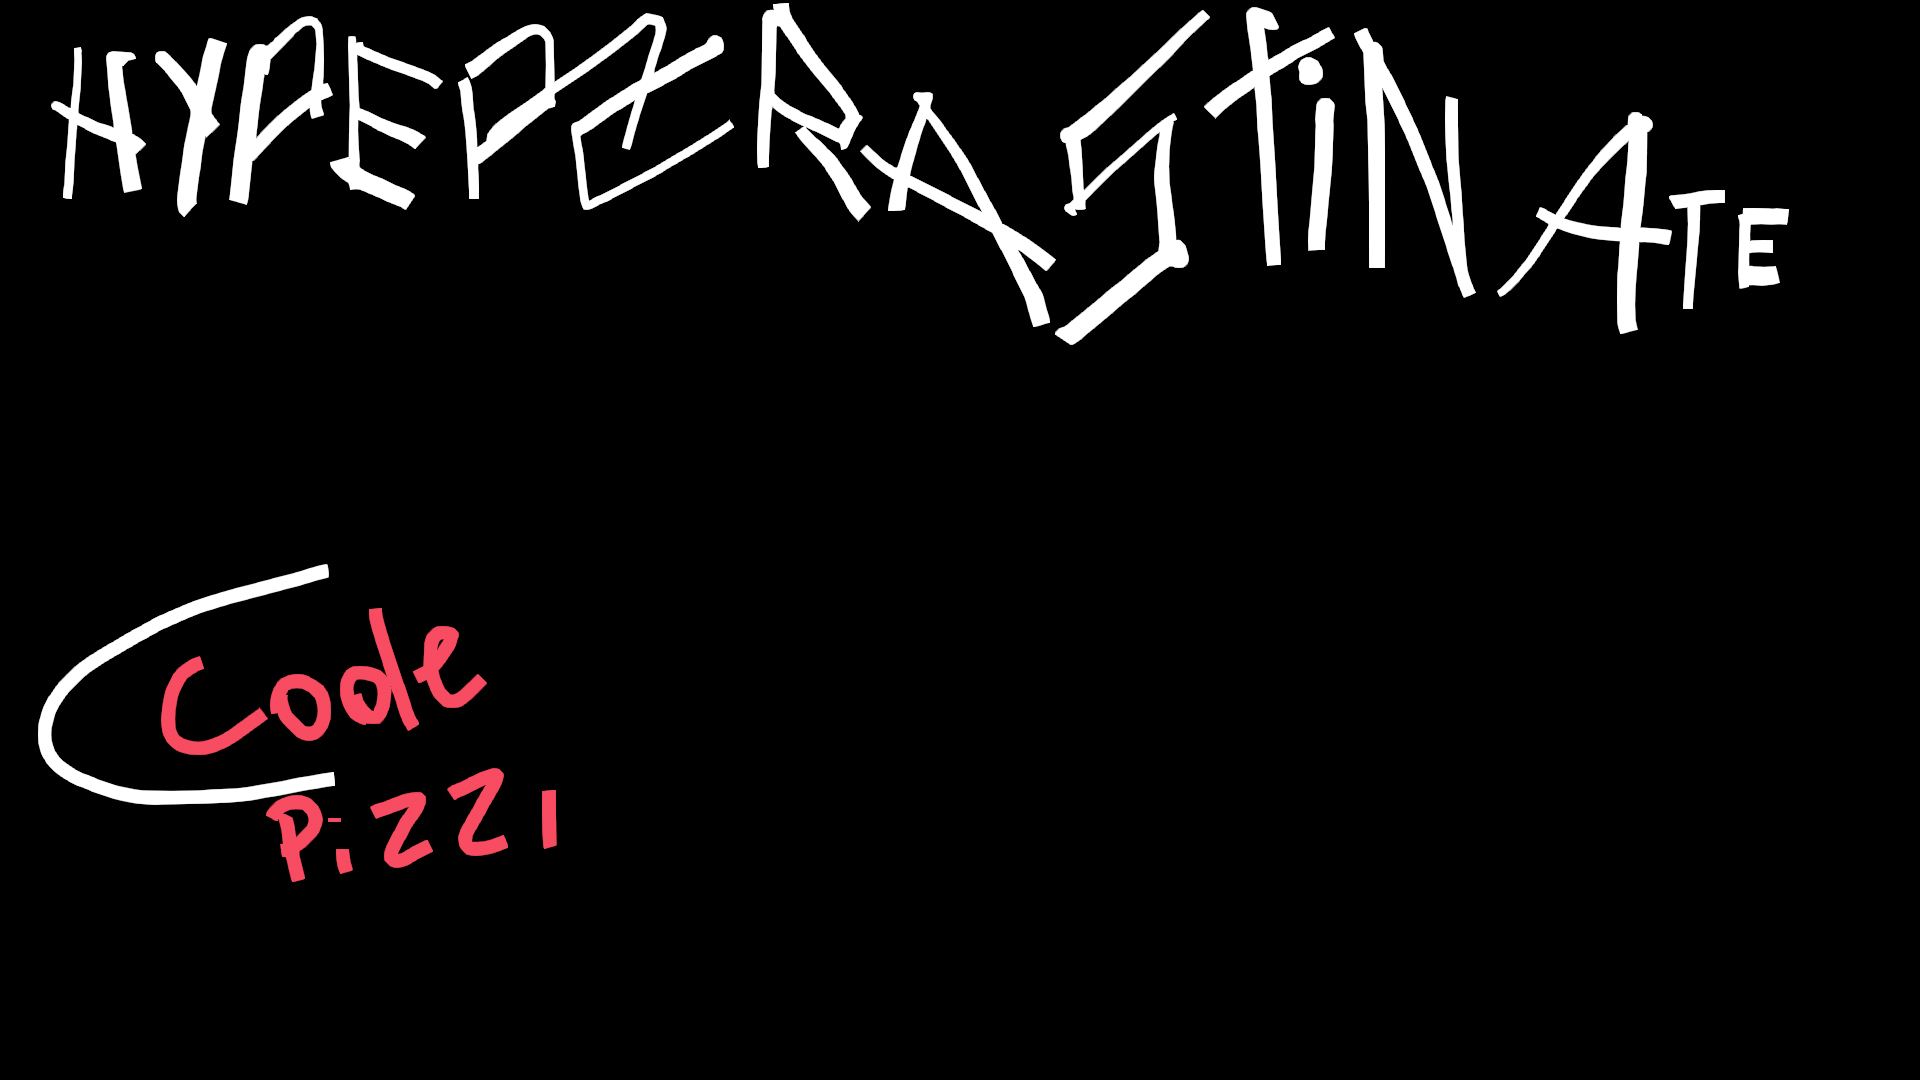 HYPERCRASTiNATE
Code
P.221